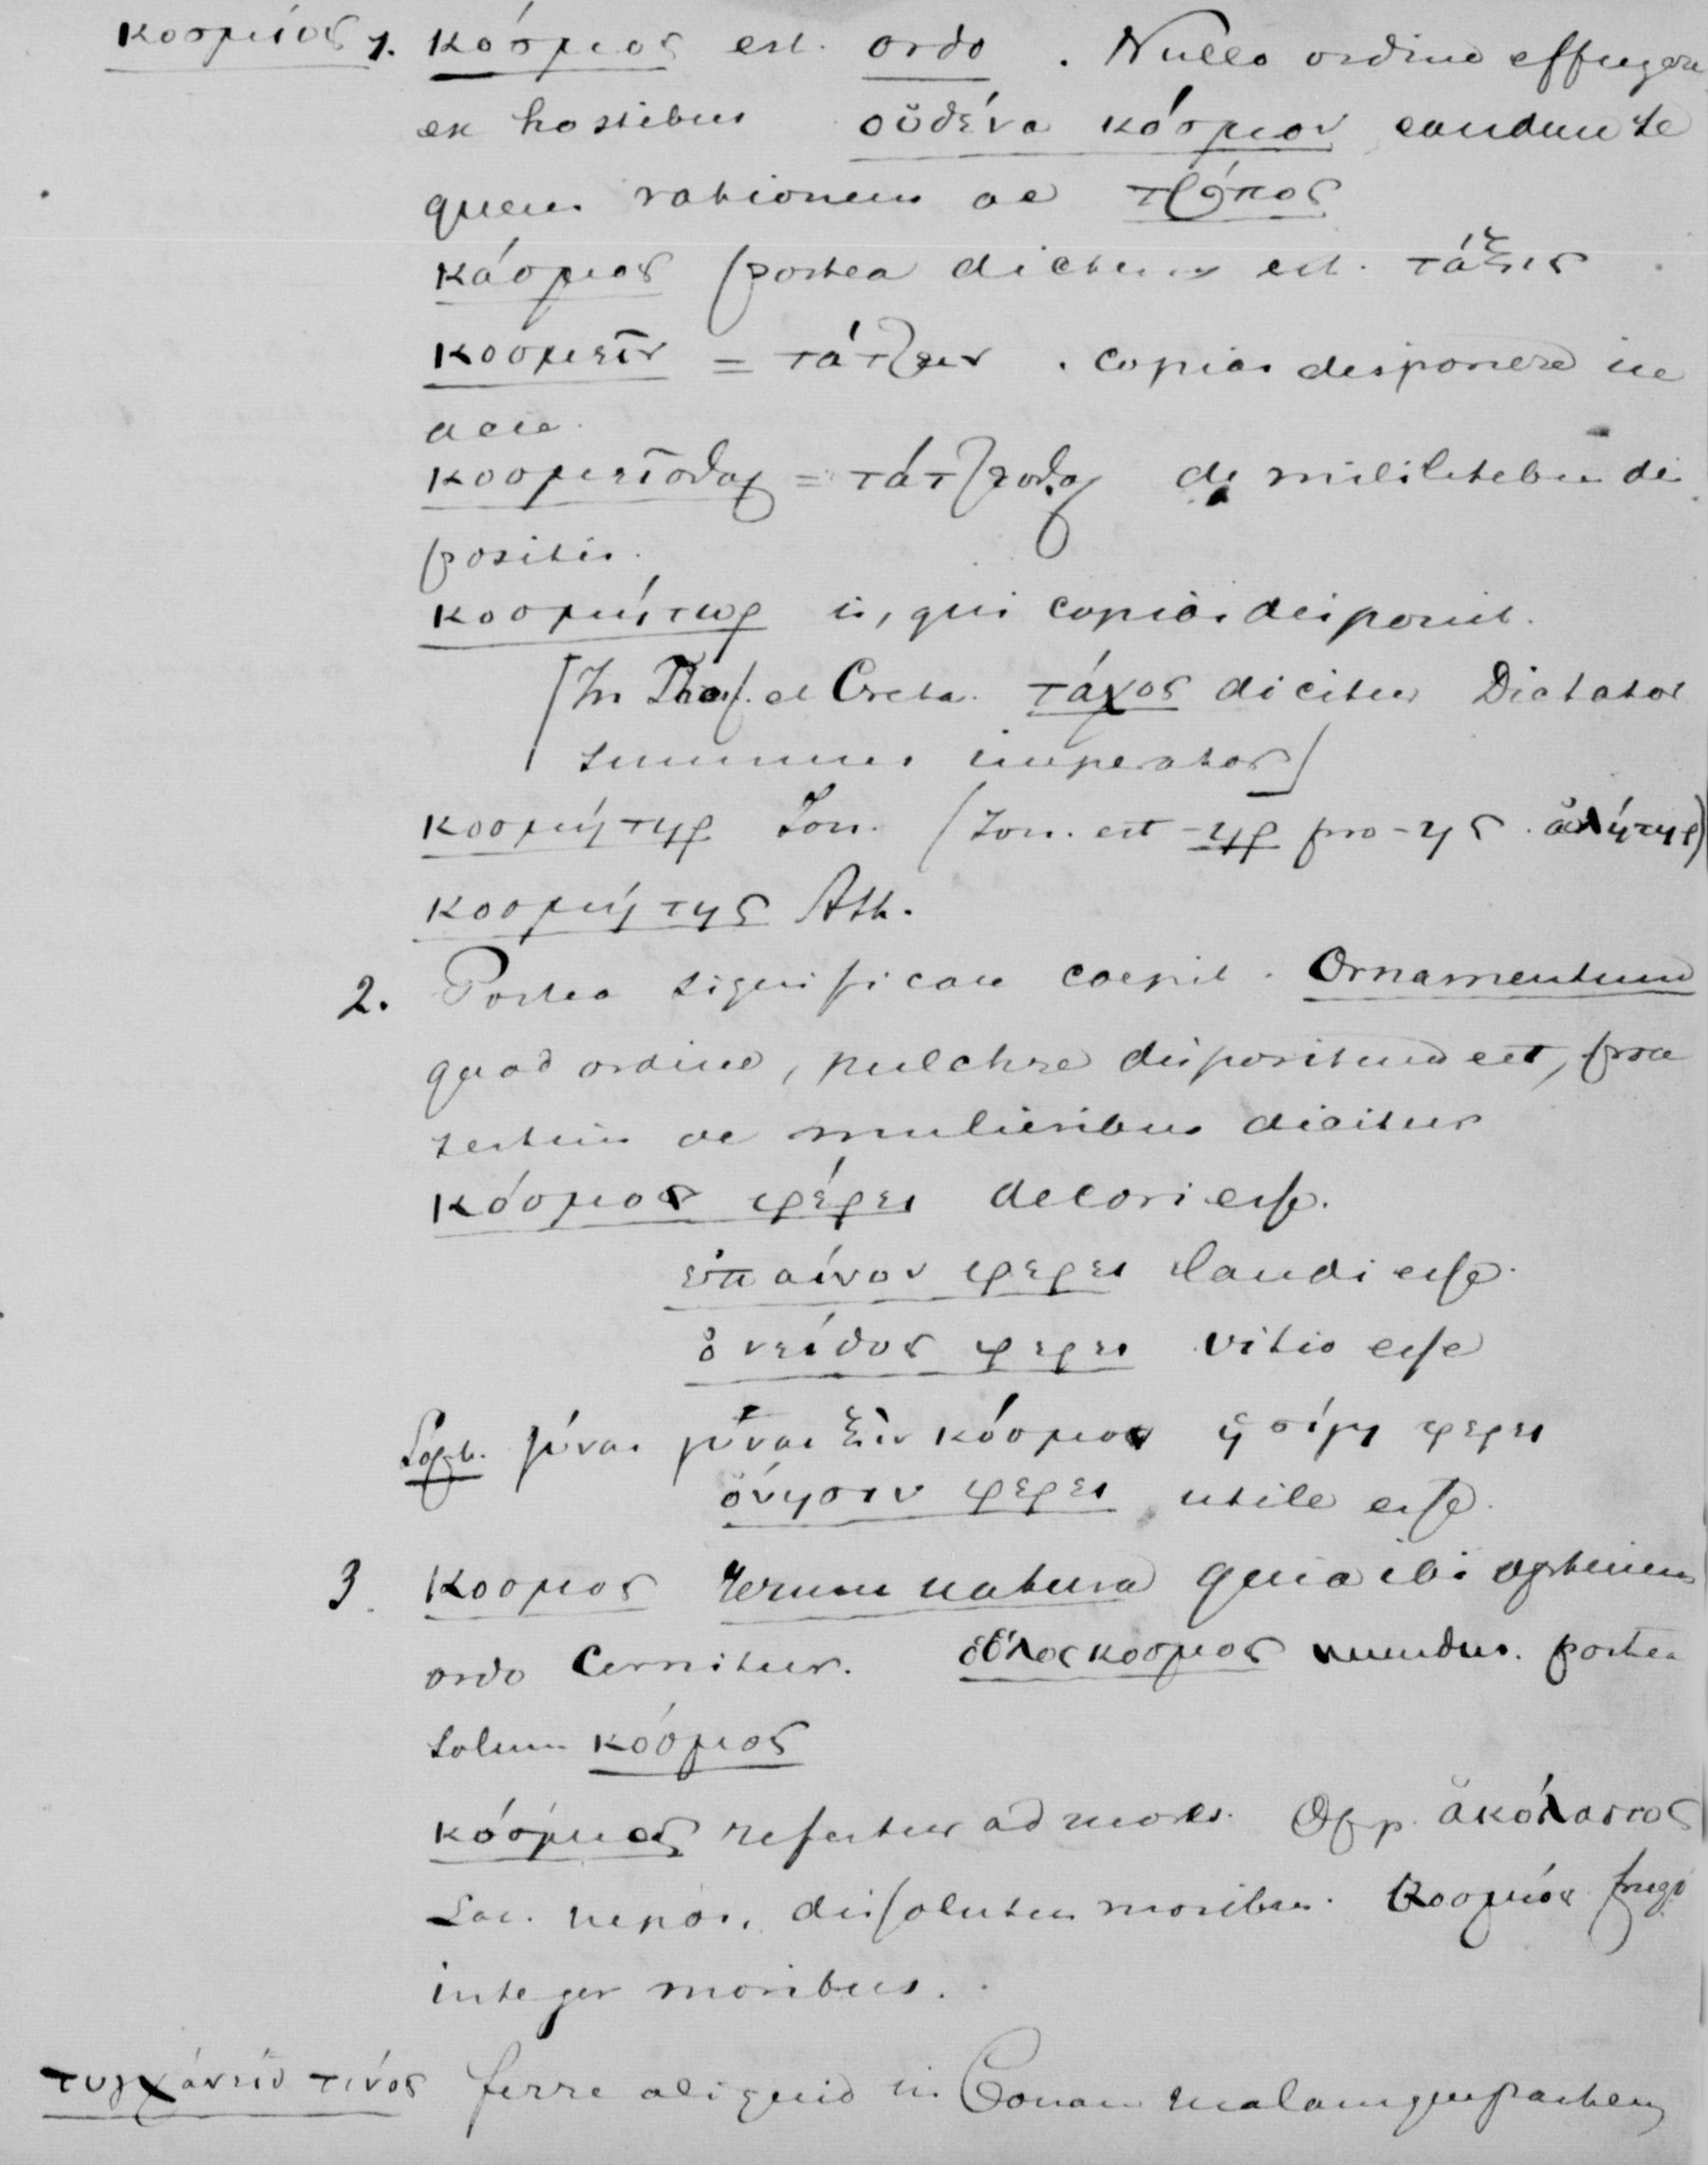 κοσμιος 1. κόσμος est. ordo. Nullo ordine effugere
ex hostibus οὐδένα κόσμον eundem te
quem rationem ac τρόπος
κόσμος postea dictum est. τάξις
κοσμεῖν = τάττειν. copias disponere in
acie.
κοσμεῖσθαι = τάττεσθαι de militibus dis
positis.
κοσμήτωρ is, qui copias disponit.
[In Thess. et Creta. τάγος dicitur Dictator
summus imperator]
κοσμήτηρ Ion. (Ion. est -ηρ pro -ης. αὐλήτηρ)
κοσμήτης Ath.
2. Postea significare coepit. Ornamentum
quod ordine, pulchre dispositum est, prae
sertim de mulieribus dicitur
κόσμος φέρει decori esse.
ἐπαίνον φερει laudi esse.
ὀνείδος φερει vitio esse
Soph. γύναι γύναιξιν κόσμος ἡ σίγη φερει
ὄνησιν φερει utile esse.
3. Κοσμος rerum natura quia ibi optimus
ordo cernitur. ὁ ὅλος κοσμος mundus. postea
solum κόσμος
κόσμιος refertur ad mores. Opp. ἀκόλαστος
Lat. nepos, dissolutus moribus. Κοσμίος frugi
integer moribus.
τυγχάνειν τινός ferre aliquid in bonam malamque partem